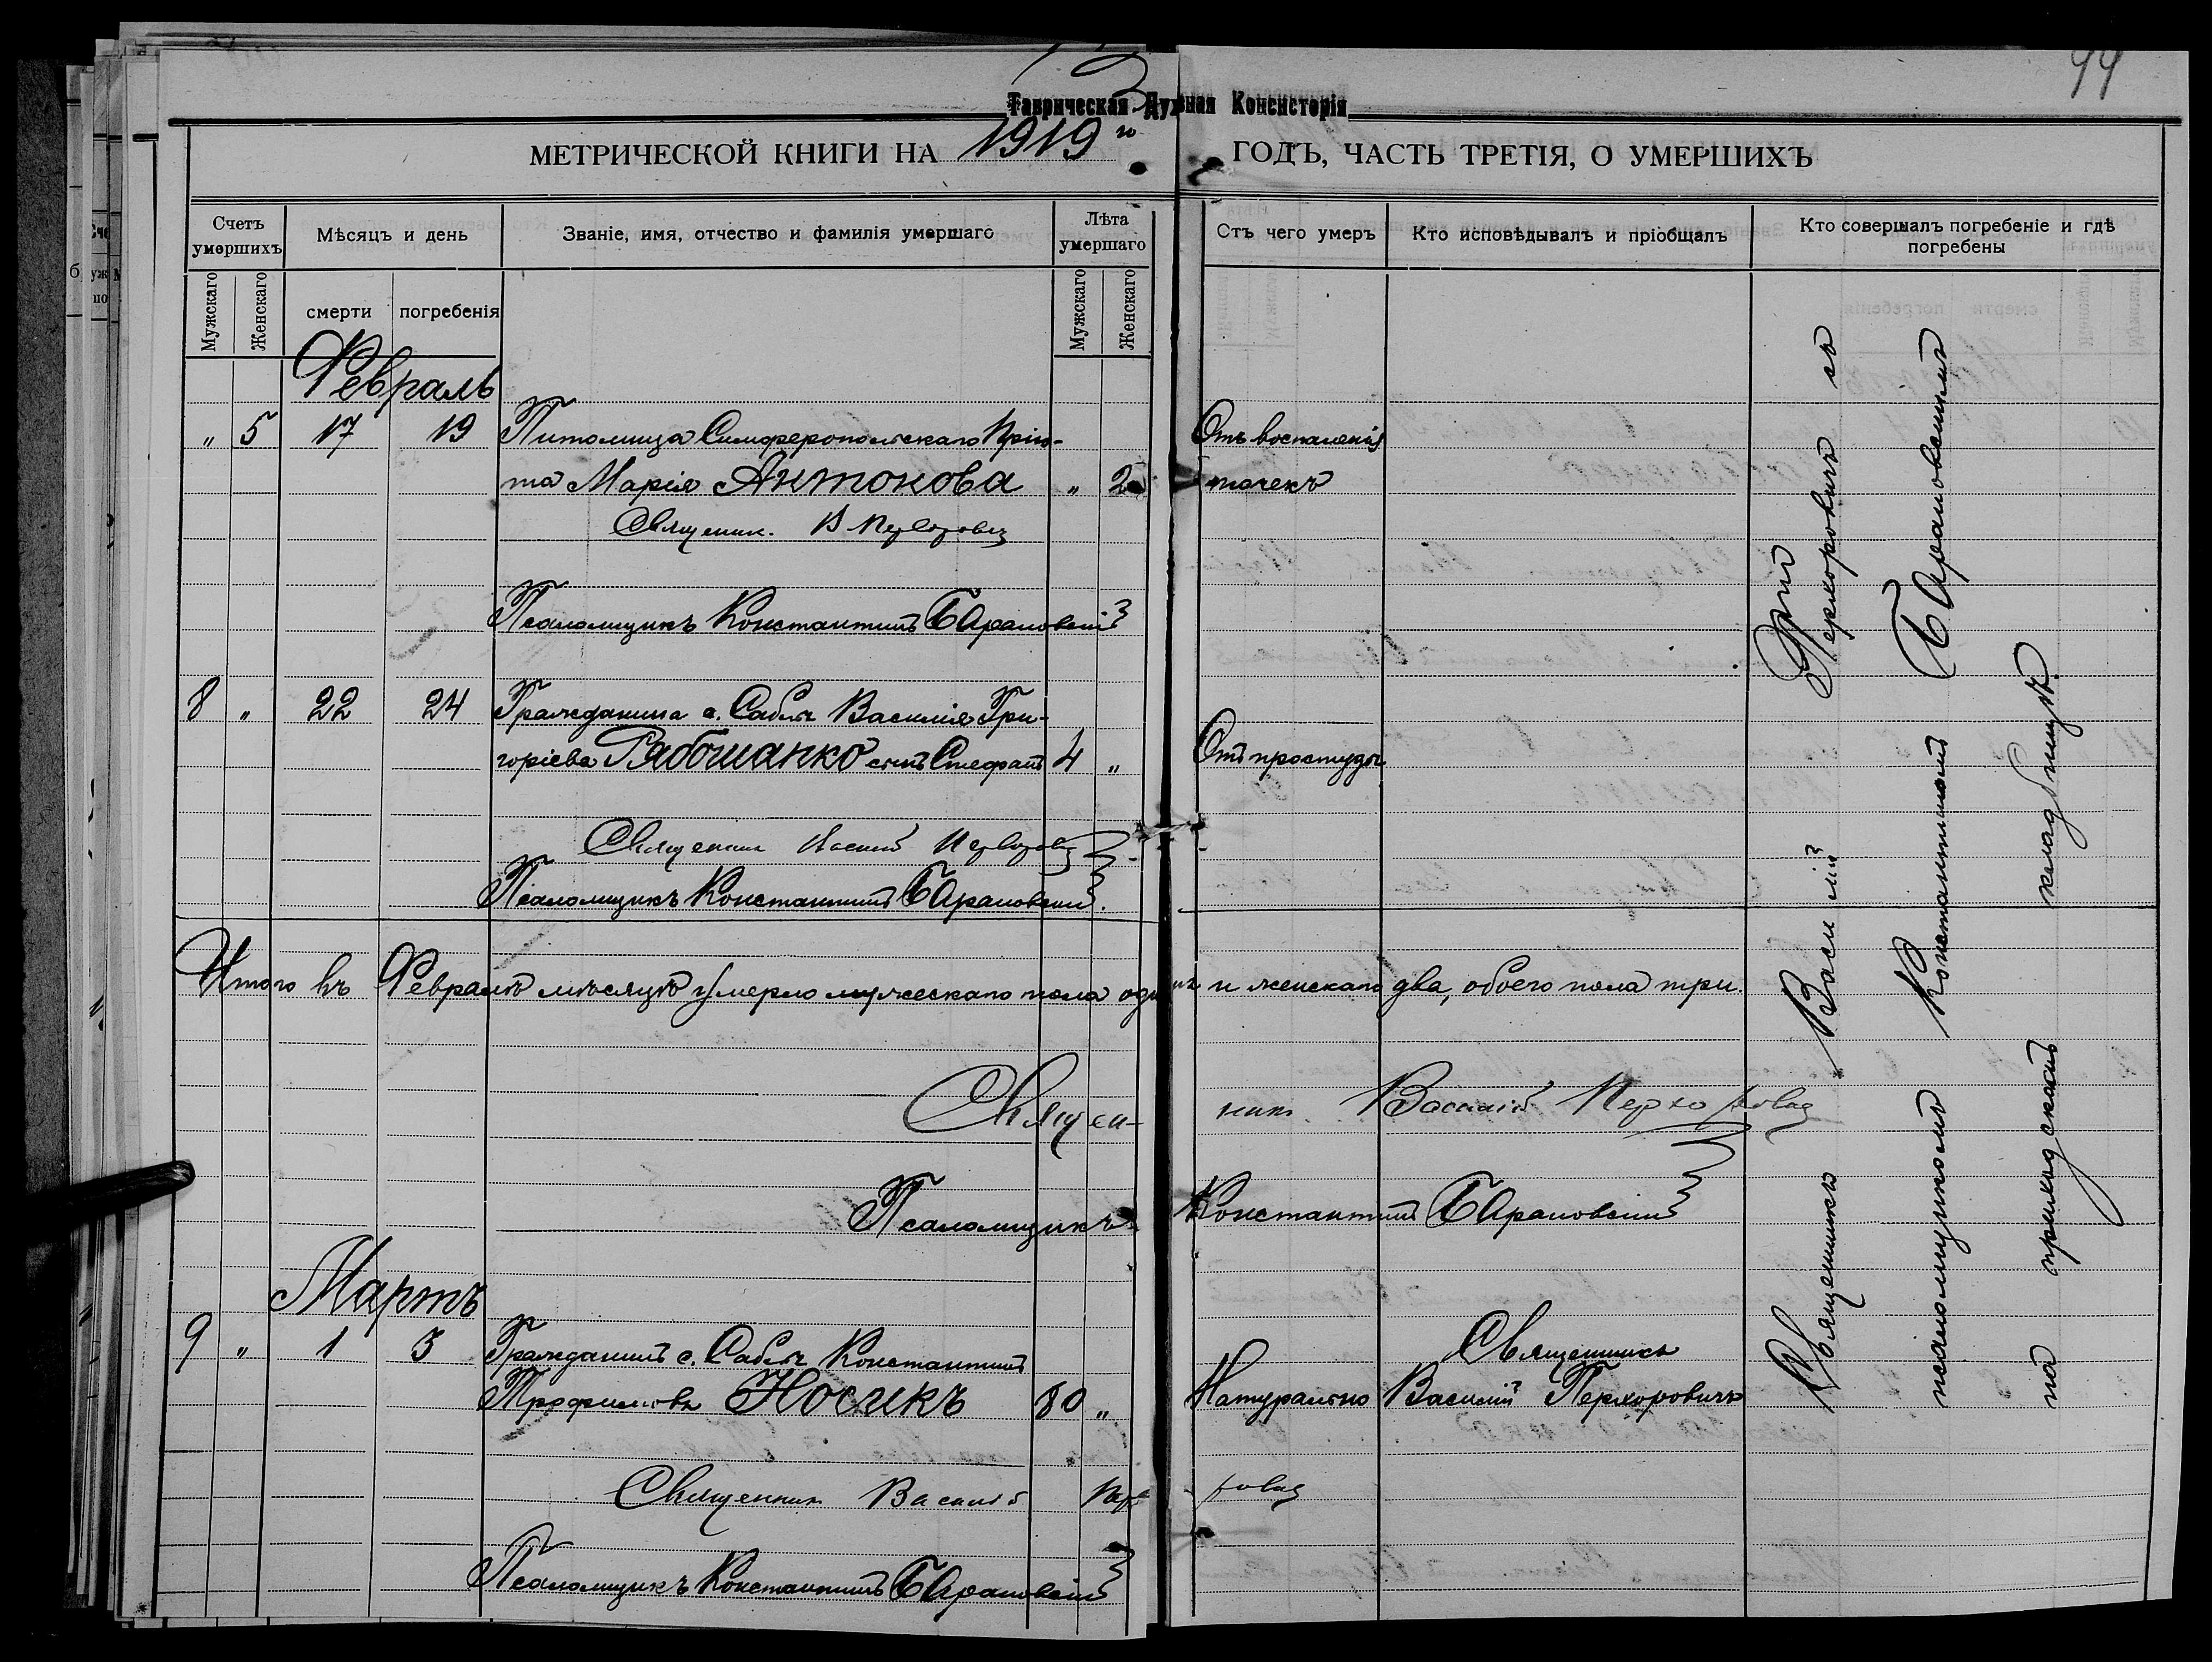 44
Таврическая Духная Консисторія
МЕТРИЧЕСКОЙ КНИГИ НА 1919 го ГОДЪ, ЧАСТЬ ТРЕТІЯ, О УМЕРШИХЪ
Счетъ умершихъ
Мѣсяцъ и день
Званіе, имя, отчество и фамилія умершаго
Лѣта умершаго
Отъ чего умеръ
Кто исповѣдывалъ и пріобщалъ
Кто совершалъ погребеніе и гдѣ погребены
Мужскаго
Женскаго
смерти
погребенія
Мужскаго
Женскаго
Февраль
„ 5 17 19 Питомица Симферопольскаго Прію-
Отъ воспаленія
та Марія Антонова „ 2
почекъ
Священик. В
Псаломщикъ Константинъ Барановскій
8 „ 22 24 Гражданина с. Саблъ Василія Гри-
горіева Рябошапко сынъ Стефанъ 4 „
Отъ простуды
Священник Василий
Псаломщикъ Константинъ Барановскій.
Итого въ Февралѣ мѣсяцѣ умерло мужескаго пола одинъ и женскаго два, обоего пола три.
Священ-
ник Василій
Псаломщикъ Константинъ Барановскій
Мартъ
9 „ 1 3 Гражданинъ с. Саблъ Константинъ
Священникъ
Трофимовъ Носикъ 80 „
Натурально Василій Перхоровичъ
Священник Василий
Псаломщикъ Константинъ Барановскій
Священникъ Василій Перхоровичъ съ
псаломщикомъ Константиномъ Барановскимъ
на приходскомъ кладбищѣ.